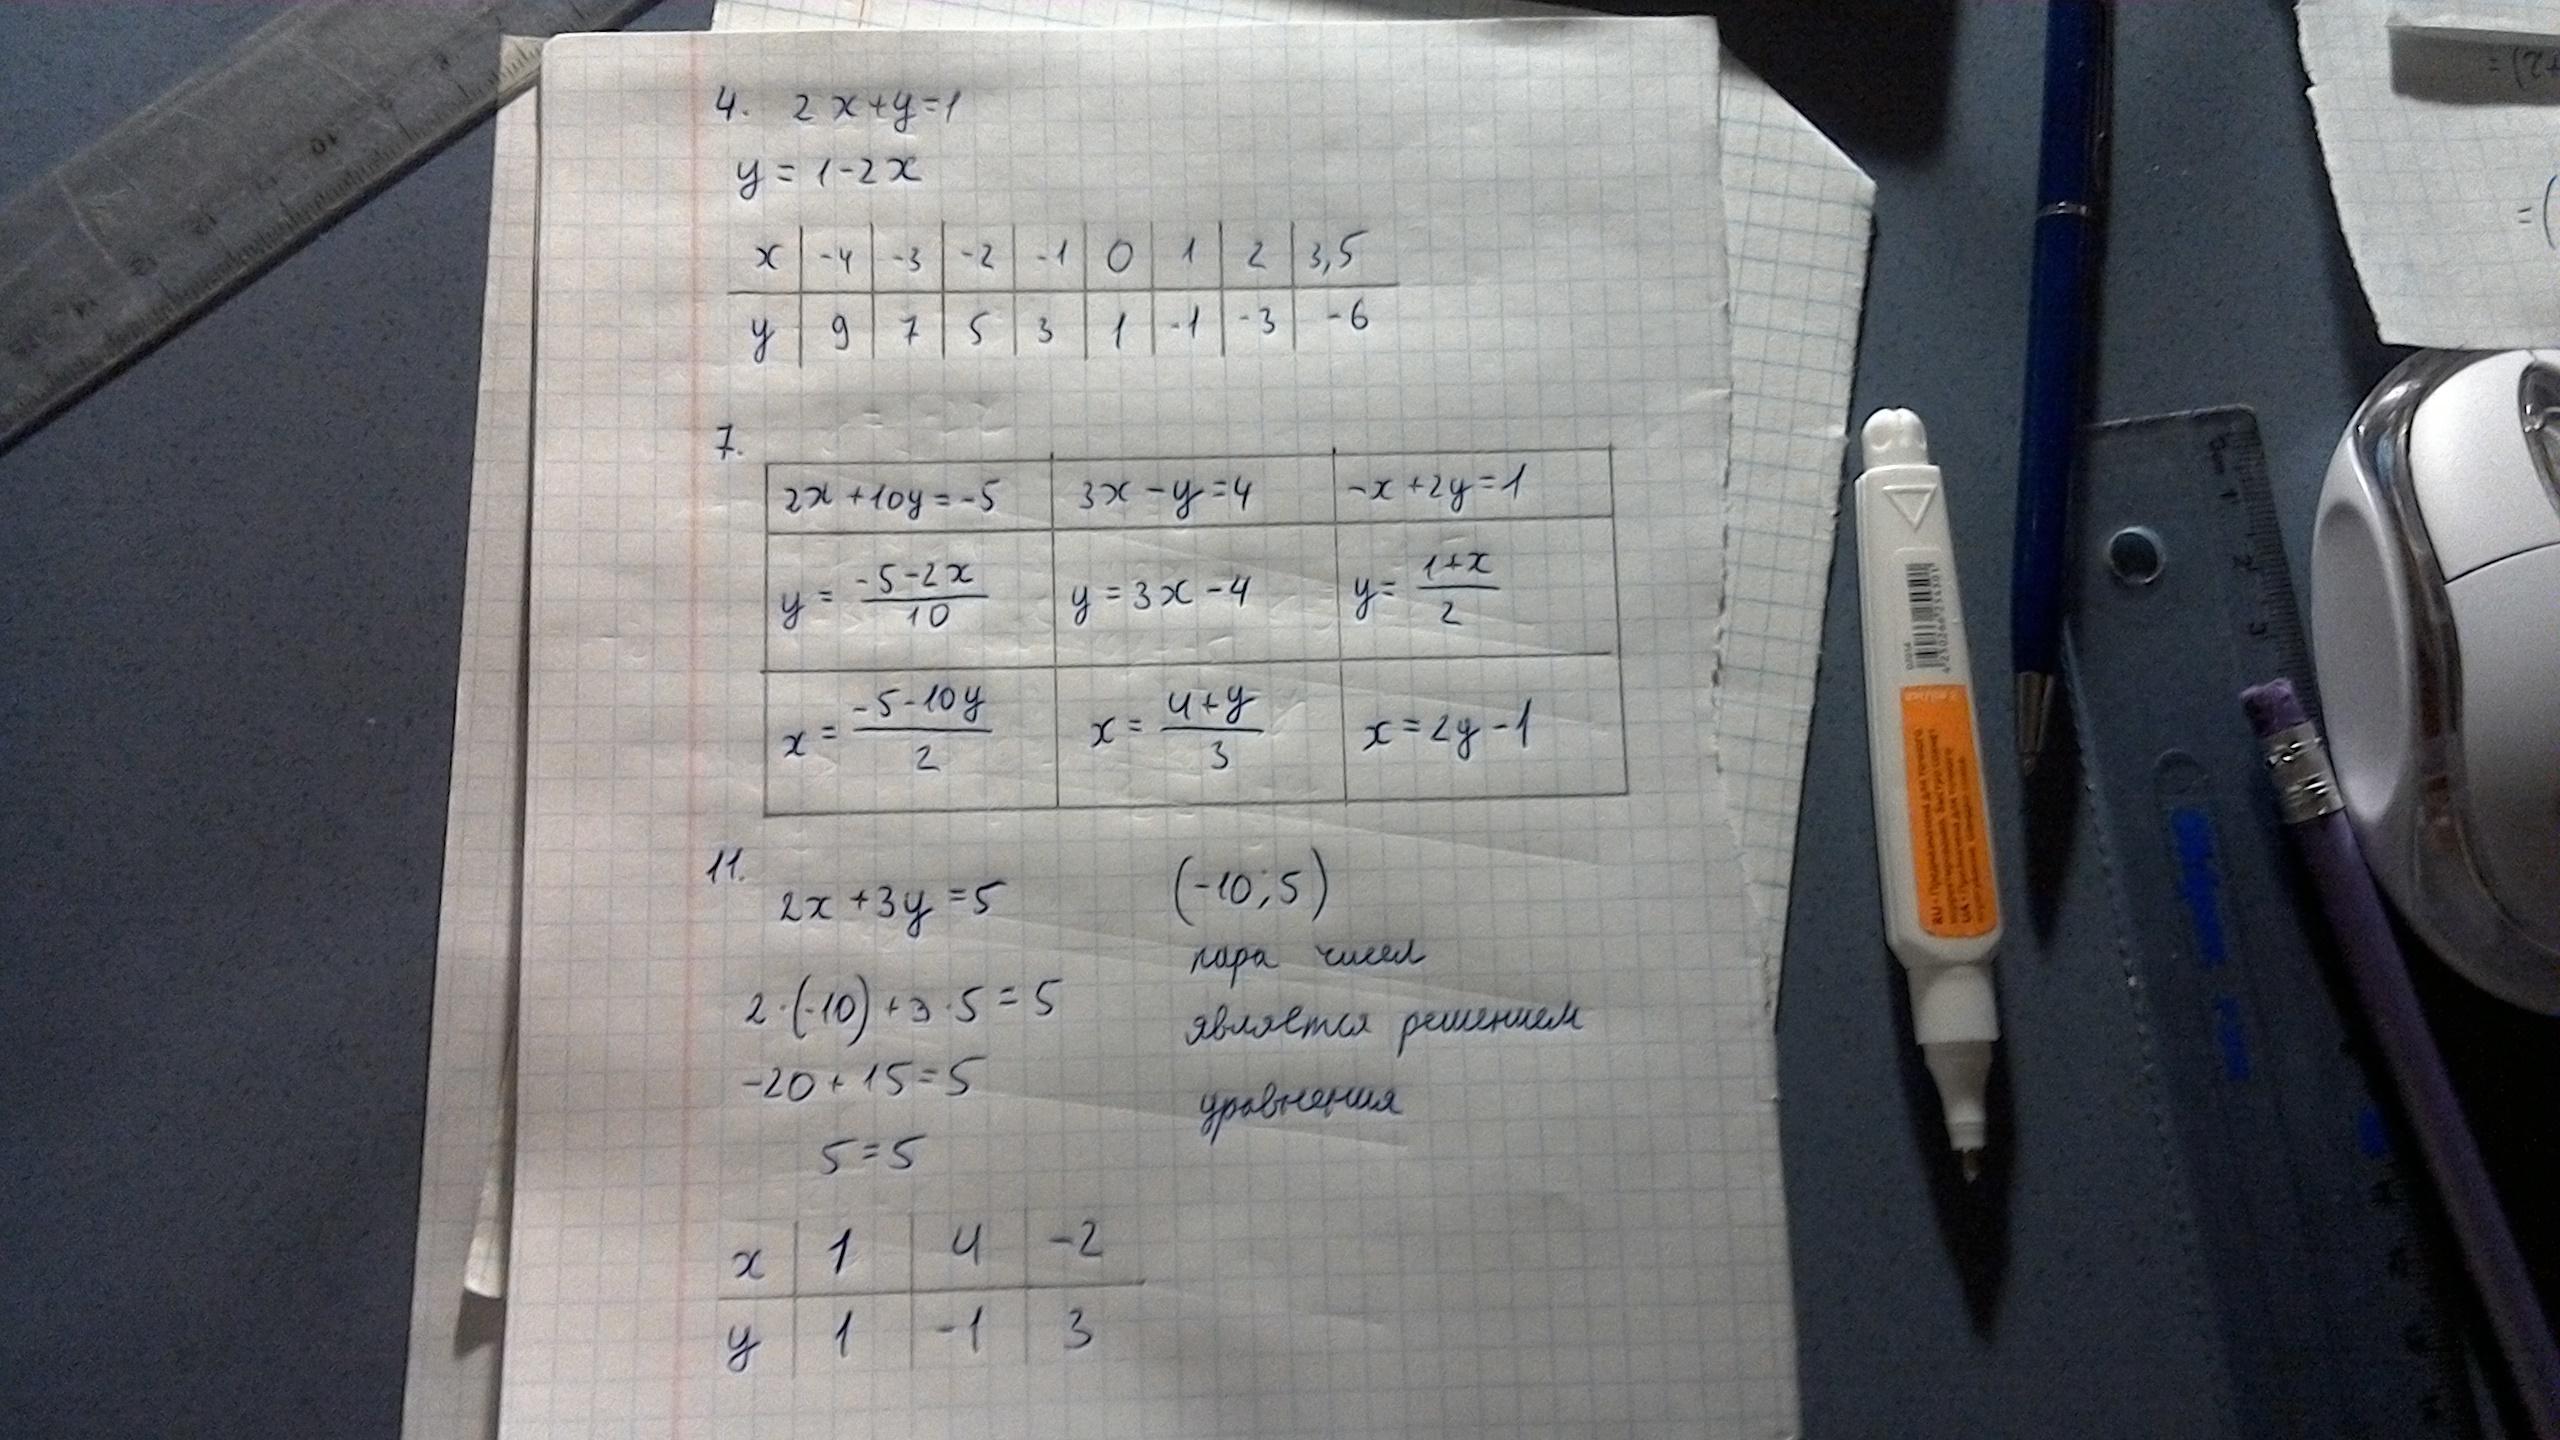 4. 2x+y=1
y = 1-2x
x -4 -3 -2 -1 0 1 2 3,5
y 9 7 5 3 1 -1 -3 -6
7.
2x+10y=-5 3x-y=4 -x+2y=1
y = (-5-2x)/10 y = 3x-4 y = (1+x)/2
x = (-5-10y)/2 x = (4+y)/3 x = 2y-1
11.
2x+3y=5 (-10; 5)
пара чисел
2·(-10)+3·5=5 является решением
-20+15=5 уравнения
5=5
x 1 4 -2
y 1 -1 3